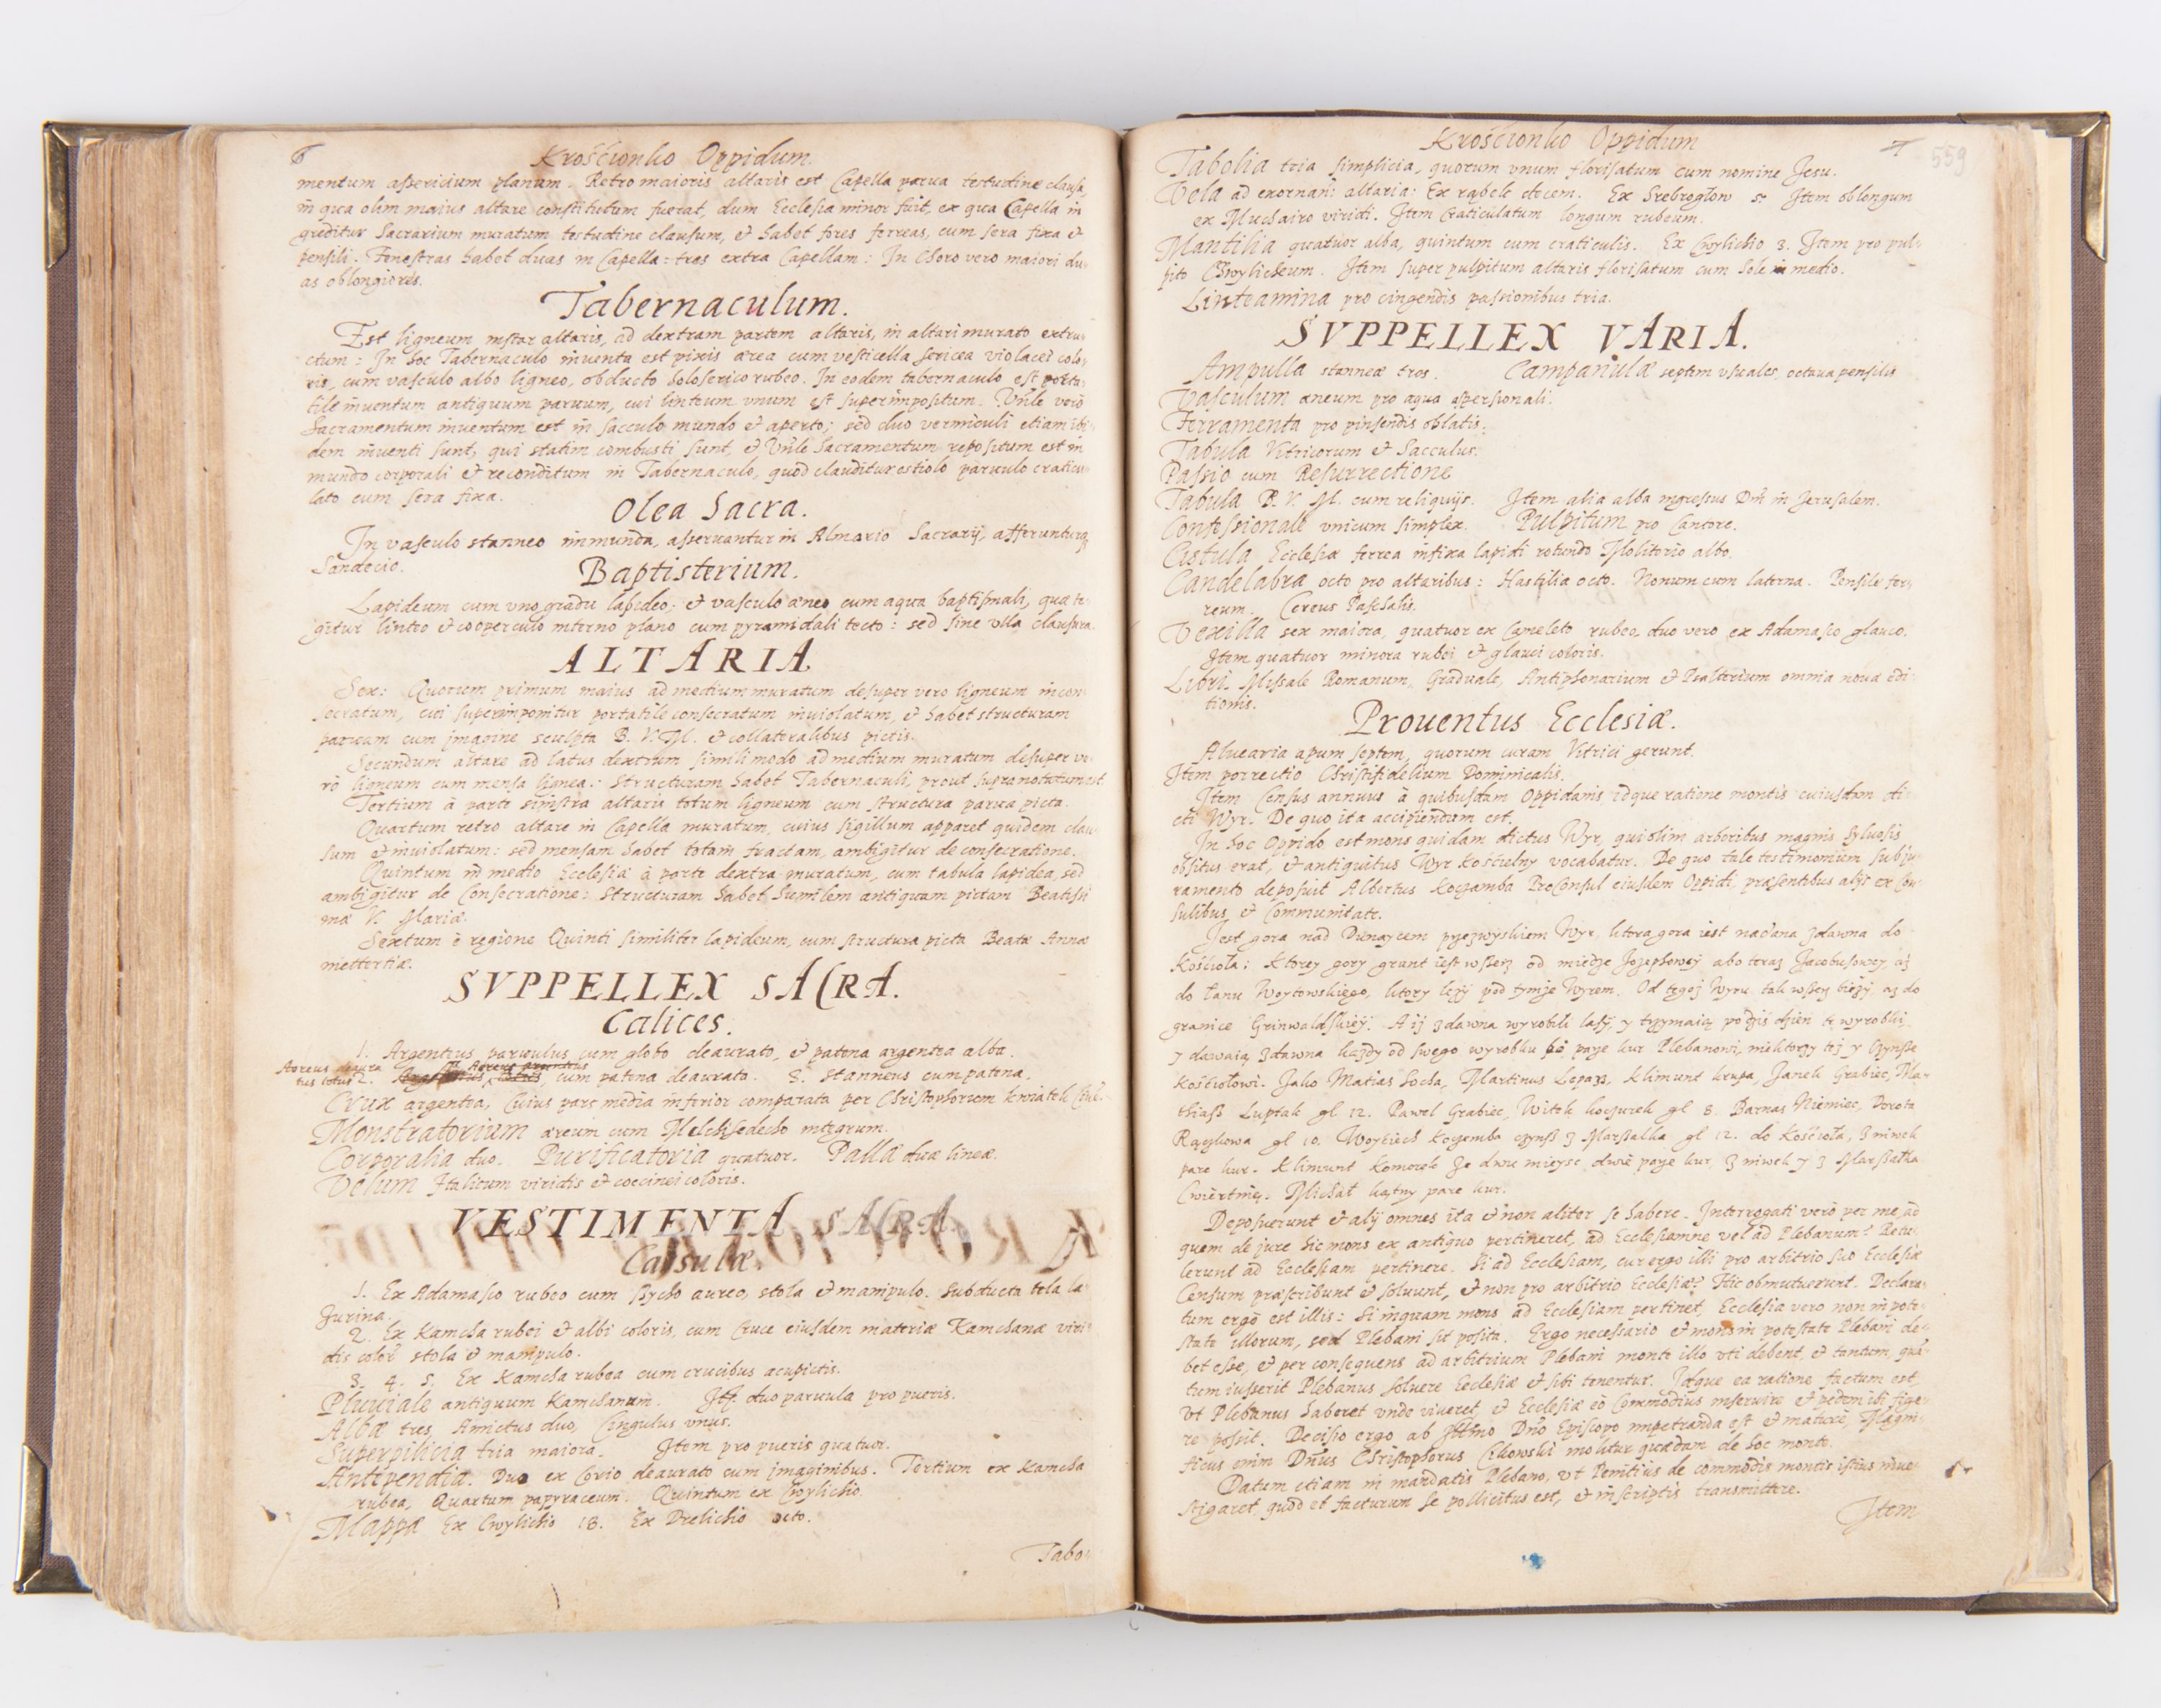 6
Krościonko Oppidum.
mentum assericium planum. Retro maioris altaris est Capella parua testudine clausa,
in qua olim maius altare constitutum fuerat, dum Ecclesia minor fuit, ex qua Capella in
greditur Sacrarium muratum testudine clausum, et habet fores ferreas, cum sera fixa et
pensili. Fenestras habet duas in Capella: tres extra Capellam: In Choro vero maiori du-
as oblongiores.
Tabernaculum.
Est ligneum instar altaris, ad dextram partem altaris, in altari murato extru-
ctum: In hoc Tabernaculo inuenta est pixis ærea cum vesticella sericea violacei colo-
ris, cum vasculo albo ligneo, obducto holoserico rubeo. In eodem tabernaculo est porta-
tile inuentum antiquum paruum, cui linteum vnum est superimpositum. Vn̄le verò
Sacramentum inuentum est in sacculo mundo et aperto; sed duo vermiculi etiam ibi-
dem inuenti sunt, qui statim combusti sunt, et Vn̄le Sacramentum repositum est in
mundo corporali et reconditum in Tabernaculo, quod clauditur ostiolo paruulo craticu-
lato cum sera fixa.
Olea Sacra.
In vasculo stanneo immunda, asseruantur in Almario Sacrarij, afferunturq
Sandecio.
Baptisterium.
Lapideum cum vno gradu lapideo; et vasculo æneo cum aqua baptismali, quæ te-
gitur linteo et cooperculo interno plano cum pyramidali tecto: sed sine vlla clausura.
ALTARIA
Sex: Quorum primum maius ad medium muratum desuper vero ligneum incon-
secratum, cui superimponitur portatile consecratum inuiolatum, et habet structuram
paruam cum imagine sculpta B. V. M. et collateralibus pictis.
Secundum altare ad latus dextrum simili modo ad medium muratum desuper ve-
rò ligneum cum mensa lignea: structuram habet Tabernaculi, prout supra notatum est.
Tertium à parte sinistra altaris totum ligneum cum structura parua picta.
Quartum retro altare in Capella muratum, cuius sigillum apparet quidem clau-
sum et inuiolatum: sed mensam habet totam fractam, ambigitur de consecratione.
Quintum in medio Ecclesiæ à parte dextra muratum, cum tabula lapidea, sed
ambigitur de Consecratione: Structuram habet humilem antiquam pictam Beatissi
mæ V. Mariæ.
Sextum è regione Quinti similiter lapideum, cum structura picta Beatæ Annæ
mettertiæ.
SVPPELLEX SACRA.
Calices.
1. Argenteus paruulus cum globo deaurato, et patena argentea alba.
Aereus deaura
tus totus 2. cum patena deaurata. 3. Stanneus cum patena.
Crux argentea, Cuius pars media inferior comparata per Christophorum Kwiatek
Monstratorium æreum cum Melchisedecho integrum.
Corporalia duo. Purificatoria quatuor. Palla duæ lineæ.
Velum Italicum viridis et coccinei coloris.
VESTIMENTA SACRA.
Casulæ.
1. Ex Adamasco rubeo cum aureo, stola et manipulo. Subducta tela la-
zurina.
2. Ex Kamcha rubei et albi coloris, cum Cruce eiusdem materiæ Kamchanæ viri-
dis color stola et manipulo.
3. 4. 5. Ex Kamcha rubea cum crucibus acupictis.
Pluuiale antiquum Kamchanum. duo paruula pro pueris.
Albæ tres, Amictus duo, Cingulus vnus.
Superpilicia tria maiora. Item pro pueris quatuor.
Antipendia. Duo ex Corio deaurato cum imaginibus. Tertium ex Kamcha
rubea, Quartum papyraceum. Quintum ex Cwylicho.
Mappæ Ex Cwylicho 18. Ex Drelicho octo.
Tabo-
Krościonko Oppidum
7
559
Tabolia tria simplicia, quorum vnum florisatum cum nomine Jesu.
Vela ad exornan: altaria: Ex rąbek decem. Ex Srebrogłow 5. Item oblongum
ex Muchairo viridi. Item Craticulatum longum rubeum.
Mantilia quatuor alba, quintum cum craticulis. Ex Cwylicho 3. Item pro pul-
pito Cwylicheum. Item super pulpitum altaris florisatum cum sole in medio.
Linteamina pro cingendis passionibus tria.
SVPPELLEX VARIA.
Ampulla stanneæ tres. Campanulæ septem vsuales, octaua pensilis
Vasculum æneum pro aqua aspersionali.
Ferramenta pro pinsendis oblatis.
Tabula Vitricorum et Sacculus.
Passio cum Resurrectione
Tabula B. V. M. cum reliquijs. Item alia alba ingressus Dn̄i in Jerusalem.
Confessionale vnicum simplex. Pulpitum pro Cantore.
Cistula Ecclesiæ ferrea infixa lapidi rotundo Molitorio albo.
Candelabra octo pro altaribus: Hastilia octo. Nonum cum laterna. Pensile fer-
reum. Cereus Paschalis.
Vexilla sex maiora, quatuor ex Cameleto rubeo, duo vero ex Adamasco glauco.
Item quatuor minora rubei et glauci coloris.
Libri. Missale Romanum, Graduale, Antiphonarium et Psalterium omnia noua edi-
tionis.
Prouentus Ecclesiæ.
Aluearia apum septem, quorum curam Vitrici gerunt.
Item porrectio Christifidelium Dominicalis.
Item Census annuus à quibusdam Oppidanis idque ratione montis cuiusdam di-
cti Wyr. De quo ita accipiendum est.
In hoc Oppido est mons quidam dictus Wyr, qui olim arboribus magnis syluosis
obsitus erat, et antiquitus Wyr Kościelny vocabatur. De quo tale testimonium subiu-
ramento deposuit Albertus Koczamba ProConsul eiusdem Oppidi, præsentibus alijs ex Con-
sulibus et Communitate.
Jest gora nad Dunaycem przezwyskiem Wyr, ktora gora iest nadana zdawna do
Kościoła; Ktorey gory grunt iest wszerz od miedze Jozephowey abo teraz Jacobusowey aż
do łanu Woytowskiego, ktory leży pod tymże Wyrem. Od tegoż Wyru tak wszerz bieży aż do
granice Grinwaldskiey. A iż zdawna wyrobili lasy, y trzymaią podziś dzień te wyrobki
y dawaią zdawna każdy od swego wyrobku po parze kur Plebanowi, niektorzy też y Czynsze
Kościołowi. Jako Matias Socha, Martinus Leparz, Klimunt krupa, Janek Grabiec, Ma-
thiasz Luptak gl 12. Paweł Grabiec, Witek kocurek gl 8. Barnas Niemiec, Dorota
Rączkowa gl 10. Woyciech Koczamba czynsz z Marszałka gl 12. do Kościoła, z niwek
pare kur. Klimunt Komorek ze dwu mieysc, dwie parze kur, z niwek y z Marszałka
Cwiertnię. Michał kątny pare kur.
Deposuerunt et alij omnes ita et non aliter se habere. Interrogati verò per me, ad
quem de jure hic mons ex antiquo pertineret, ad Ecclesiamne vel ad Plebanum? Retu-
lerunt ad Ecclesiam pertinere. Si ad Ecclesiam, cur ergo illi pro arbitrio suo Ecclesiæ
Censum præscribunt et soluunt, et non pro arbitrio Ecclesiæ? Hic obmutuerunt. Declara-
tum ergo est illis: Si inquam mons ad Ecclesiam pertinet, Ecclesia vero non in pote-
state illorum, sed Plebani sit posita. Ergo necessario et mons in potestate Plebani de-
bet esse, et per consequens ad arbitrium Plebani monte illo vti debent, et tantum, quā-
tum iusserit Plebanus soluere Ecclesiæ et sibi tenentur. Idque ea ratione factum est,
vt Plebanus haberet vnde viueret, et Ecclesiæ eò Commodius inseruire et pedem ibi fige-
re possit. Decisio ergo ab Dn̄o Episcopo impetranda est et mature, Magni-
ficus enim Dn̄us Christophorus Cikowski molitur quædam de hoc monte.
Datum etiam in mandatis Plebano, vt Penitius de commodis montis istius inue-
stigaret, quod et facturum se pollicitus est, et in scriptis transmittere.
Item